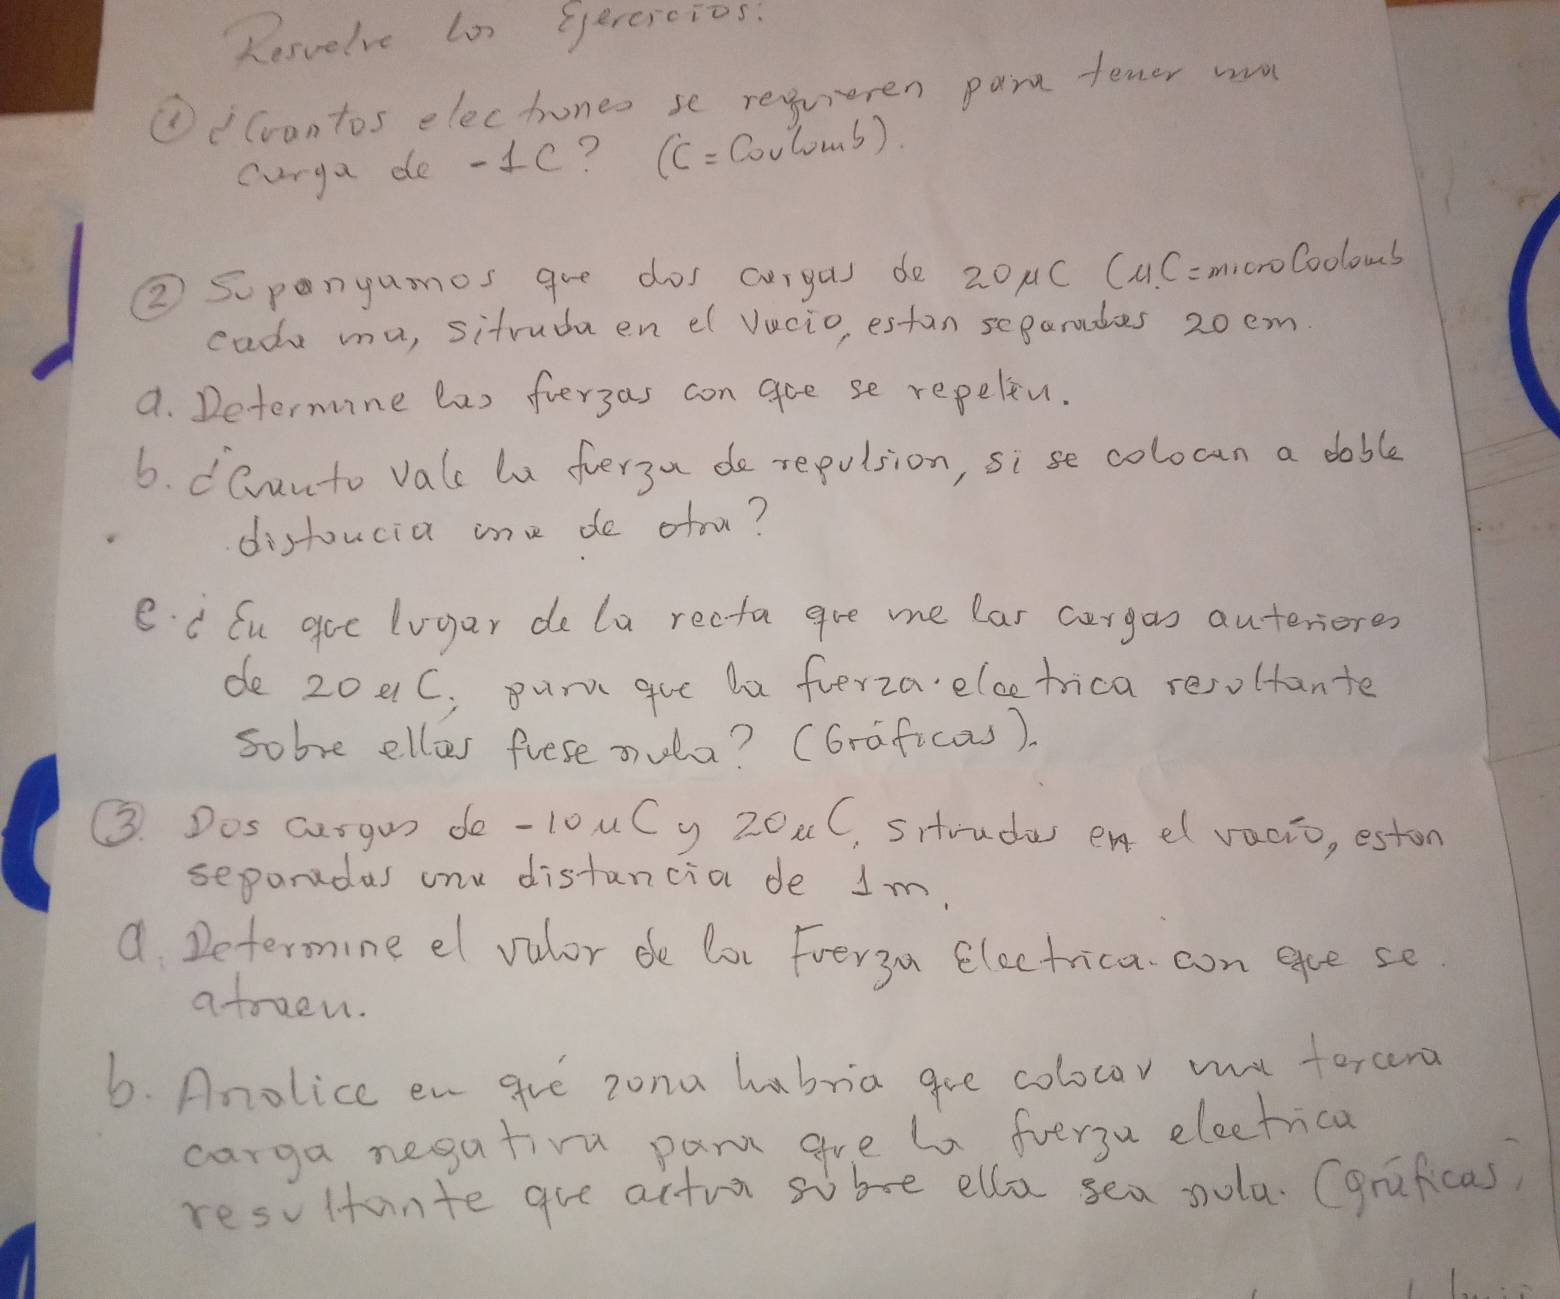 Resuelve los Ejercicios:
① ¿Cuantos electrones se requieren para tener una
carga de -1C? (C = Coulomb).
② Supongamos que dos cargas de 20 μC (μC = microCoolomb
cada una, situada en el vacio, estan separadas 20 cm.
a. Determine las fuerzas con que se repelen.
b. ¿Cuanto vale la fuerza de repulsion, si se colocan a doble
distancia una de otra?
c. ¿En que lugar de la recta que une las cargas anteriores
de 20 μC, para que la fuerza electrica resultante
sobre ellas fuese nula? (Gráficas).
③. Dos cargas de -10 μC y 20 μC, situadas en el vacio, estan
separadas una distancia de 1m.
a. Determine el valor de la Fuerza Electrica con que se
atraen.
b. Analice en qué zona habria que colocar una tercera
carga negativa para que la fuerza electrica
resultante que actua sobre ella sea nula. (gráficas)